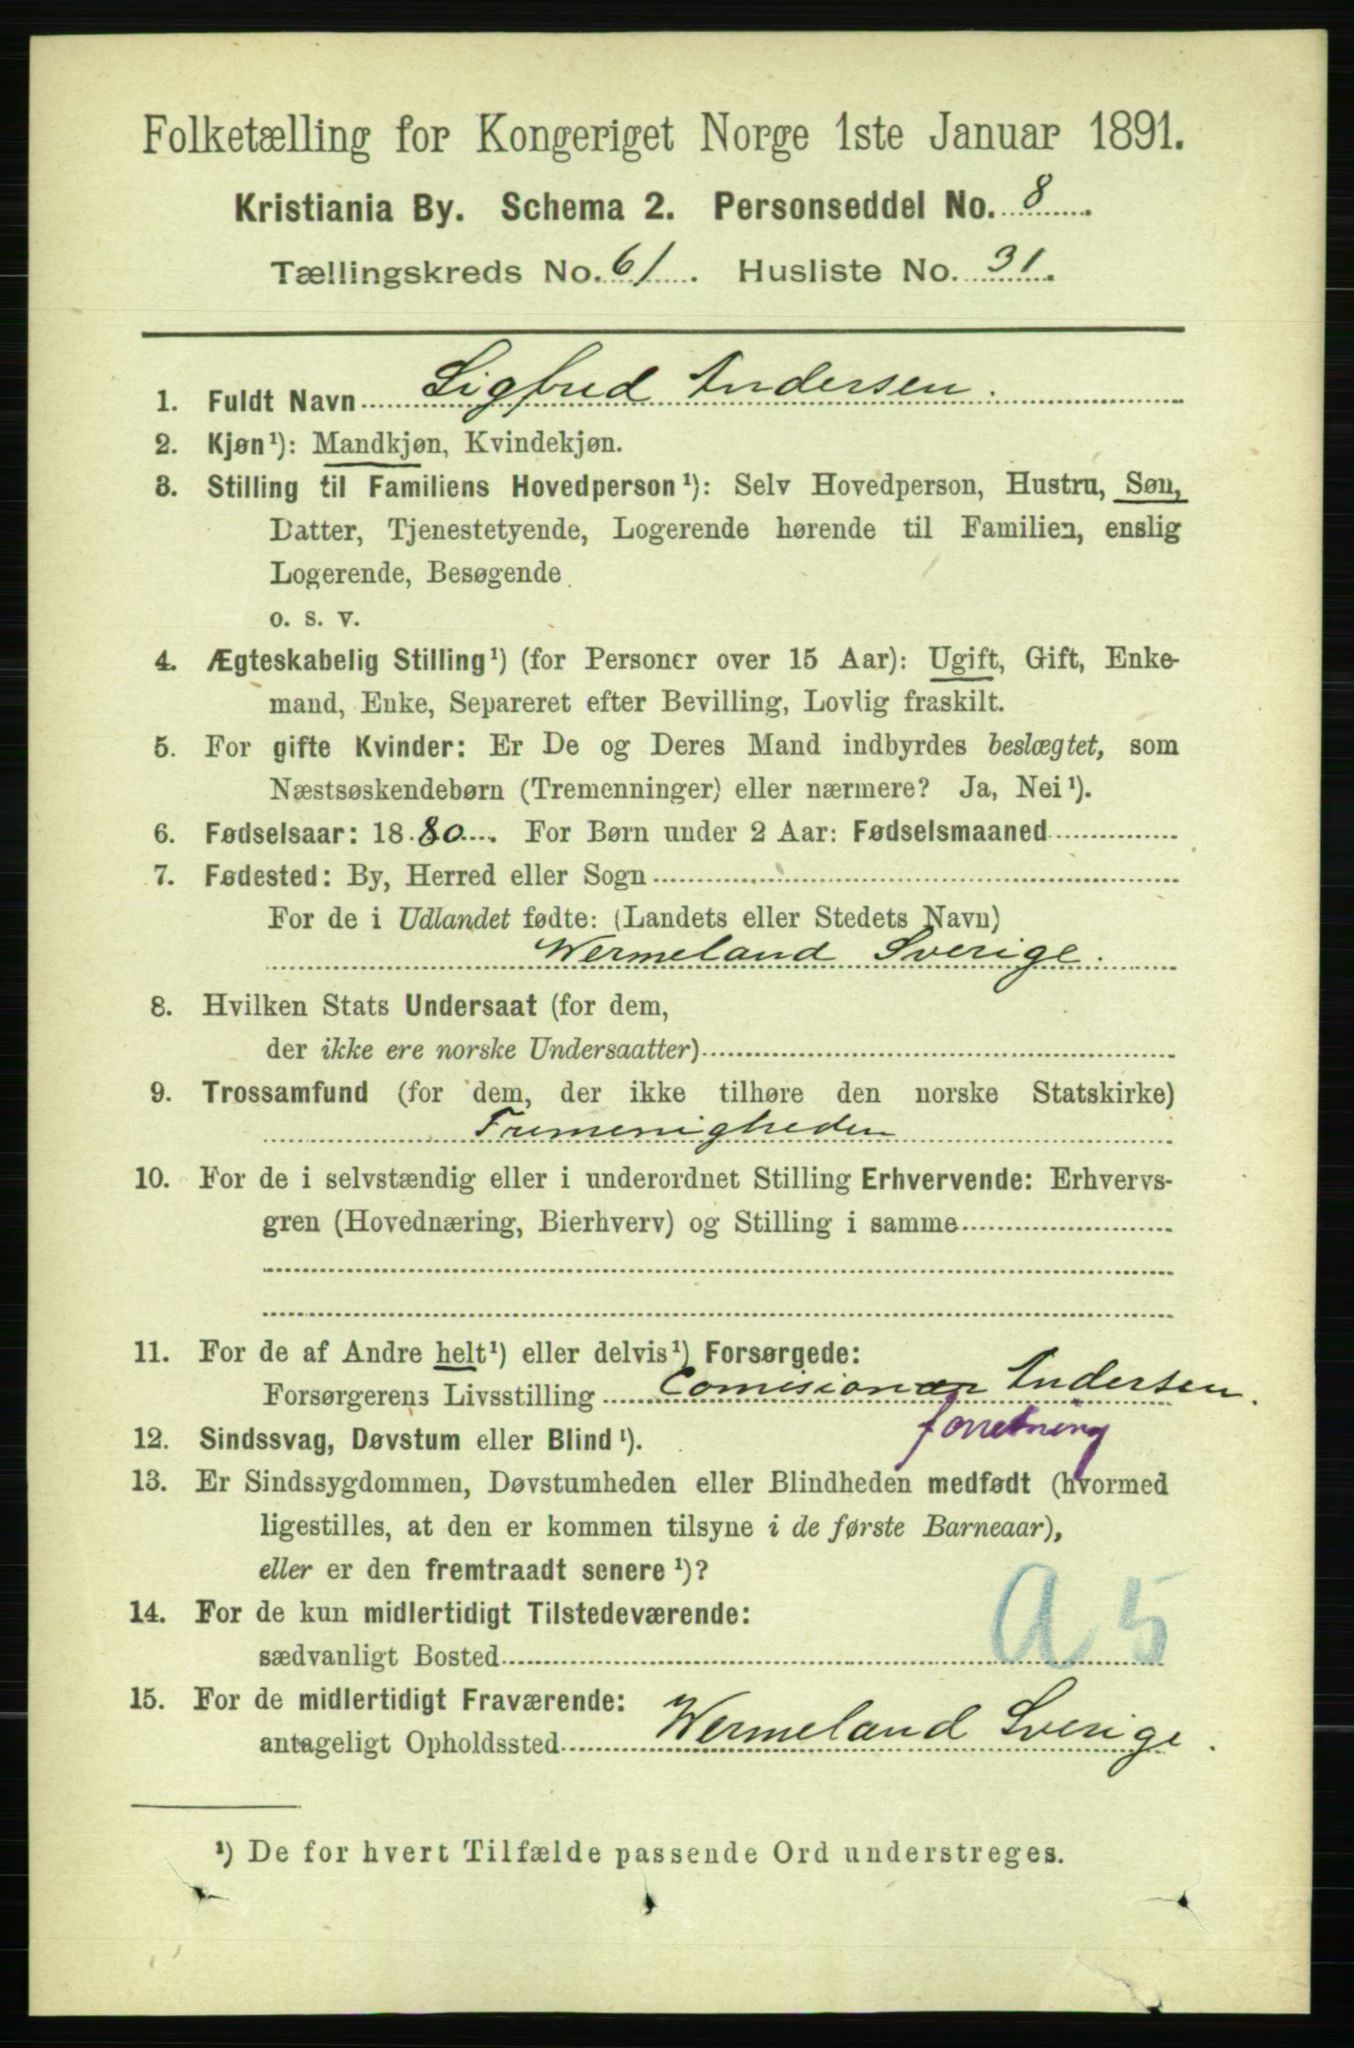 Folketælling for Kongeriget Norge 1ste Januar 1891.
Kristiania By. Schema 2. Personseddel No. 8.
Tællingskreds No. 61. Husliste No. 31.
1. Fuldt Navn Sigfred Andersen.
2. Kjøn¹): Mandkjøn, Kvindekjøn.
3. Stilling til Familiens Hovedperson¹): Selv Hovedperson, Hustru, Søn,
Datter, Tjenestetyende, Logerende hørende til Familien, enslig
Logerende, Besøgende
o. s. v.
4. Ægteskabelig Stilling¹) (for Personer over 15 Aar): Ugift, Gift, Enke-
mand, Enke, Separeret efter Bevilling, Lovlig fraskilt.
5. For gifte Kvinder: Er De og Deres Mand indbyrdes beslægtet, som
Næstsøskendebørn (Tremenninger) eller nærmere? Ja, Nei¹).
6. Fødselsaar: 1880. For Børn under 2 Aar: Fødselsmaaned
7. Fødested: By, Herred eller Sogn
For de i Udlandet fødte: (Landets eller Stedets Navn)
Wermeland Sverige.
8. Hvilken Stats Undersaat (for dem,
der ikke ere norske Undersaatter)
9. Trossamfund (for dem, der ikke tilhøre den norske Statskirke)
Frimenigheden
10. For de i selvstændig eller i underordnet Stilling Erhvervende: Erhvervs-
gren (Hovednæring, Bierhverv) og Stilling i samme
11. For de af Andre helt¹) eller delvis¹) Forsørgede:
Forsørgerens Livsstilling Comisionær Andersen.
forretning
12. Sindssvag, Døvstum eller Blind¹).
13. Er Sindssygdommen, Døvstumheden eller Blindheden medfødt (hvormed
ligestilles, at den er kommen tilsyne i de første Barneaar),
eller er den fremtraadt senere¹)?
A 5
14. For de kun midlertidigt Tilstedeværende:
sædvanligt Bosted
15. For de midlertidigt Fraværende:
antageligt Opholdssted Wermeland Sverige.
¹) De for hvert Tilfælde passende Ord understreges.